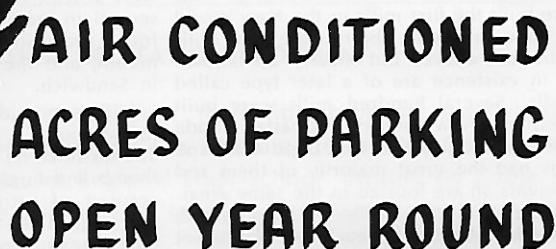 AIR CONDITIONED
ACRES OF PARKING
OPEN YEAR ROUND